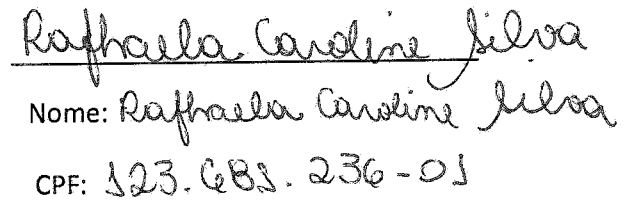 Rafhaela Caroline Silva
Nome: Rafhaela Caroline Silva
CPF: 123.681.236-01